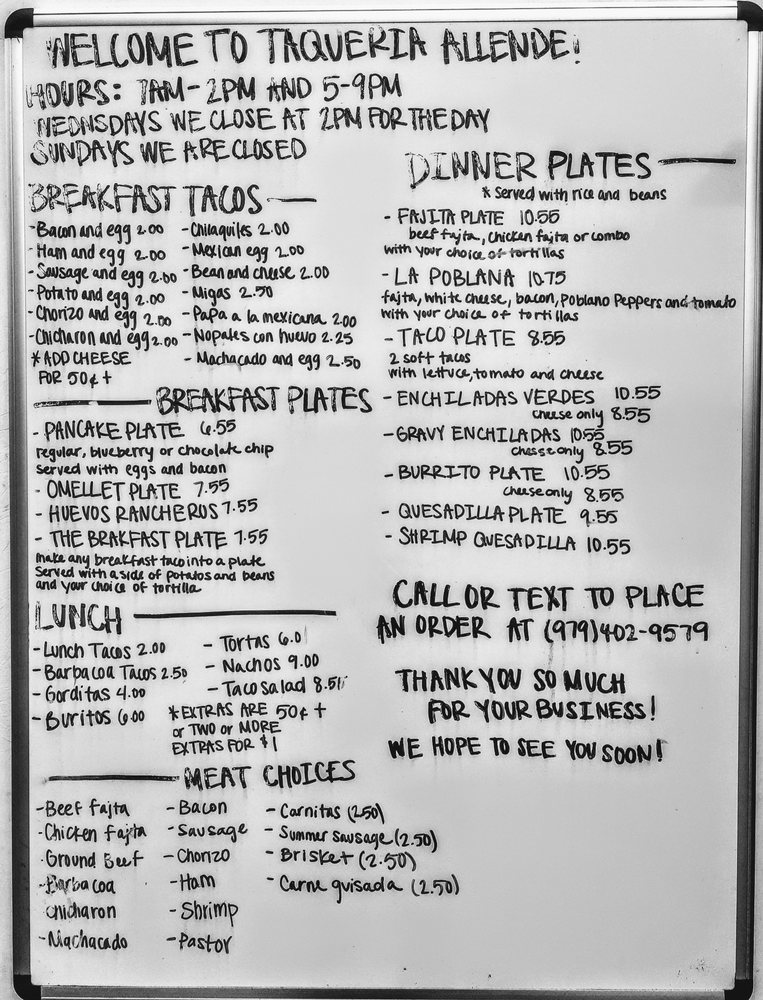 WELCOME TO TAQUERIA ALLENDE!
HOURS: 7AM-2PM AND 5-9PM
WEDNSDAYS WE CLOSE AT 2PM FOR THE DAY
SUNDAYS WE ARE CLOSED
BREAKFAST TACOS
-Bacon and egg 2.00
-Ham and egg 2.00
-Sausage and egg 2.00
-Potato and egg 2.00
-Chorizo and egg 2.00
-Chicharon and egg 2.00
*ADD CHEESE
FOR 50¢+
-Chilaquiles 2.00
-Mexican egg 2.00
-Bean and cheese 2.00
-Migas 2.50
-Papa a la mexicana 2.00
-Nopales con huevo 2.25
-Machacado and egg 2.50
BREAKFAST PLATES
- PANCAKE PLATE 6.55
regular, blueberry or chocolate chip
served with eggs and bacon
- OMELLET PLATE 7.55
- HUEVOS RANCHEROS 7.55
- THE BRAKFAST PLATE 7.55
make any breakfast taco into a plate
Served with a side of potatos and beans
and your choice of tortilla
LUNCH
-Lunch Tacos 2.00
-Barbacoa Tacos 2.50
-Gorditas 4.00
-Buritos 6.00
- Tortas 6.0
- Nachos 9.00
- Taco Salad 8.5
*EXTRAS ARE 50¢+
or TWO or MORE
EXTRAS FOR $1
MEAT CHOICES
-Beef fajta
-Chicken fajita
-Ground Beef
-Barbacoa
chicharon
-Machacado
-Bacon
-Sausage
-Chorizo
-Ham
-Shrimp
-Pastor
- Carnitas (2.50)
- Summer sausage (2.50)
- Brisket (2.50)
- Carne guisada (2.50)
DINNER PLATES
*Served with rice and beans
- FAJITA PLATE 10.55
beef fajta, chicken fajita or combo
with your choice of tortillas
- LA POBLANA 10.75
fajta, white cheese, bacon, Poblano Peppers and tomato
with your choice of tortillas
- TACO PLATE 8.55
2 soft tacos
with lettuce, tomato and cheese
- ENCHILADAS VERDES 10.55
cheese only 8.55
-GRAVY ENCHILADAS 10.55
chesse only 8.55
- BURRITO PLATE 10.55
cheese only 8.55
- QUESADILLA PLATE 9.55
- SHRIMP QUESADILLA 10.55
CALL OR TEXT TO PLACE
AN ORDER AT (979)402-9579
THANK YOU SO MUCH
FOR YOUR BUSINESS!
WE HOPE TO SEE YOU SOON!